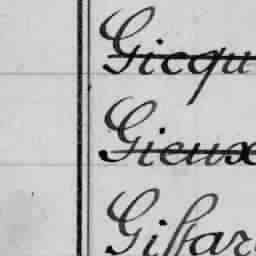 Gicqu
Gieuxe
Giffar